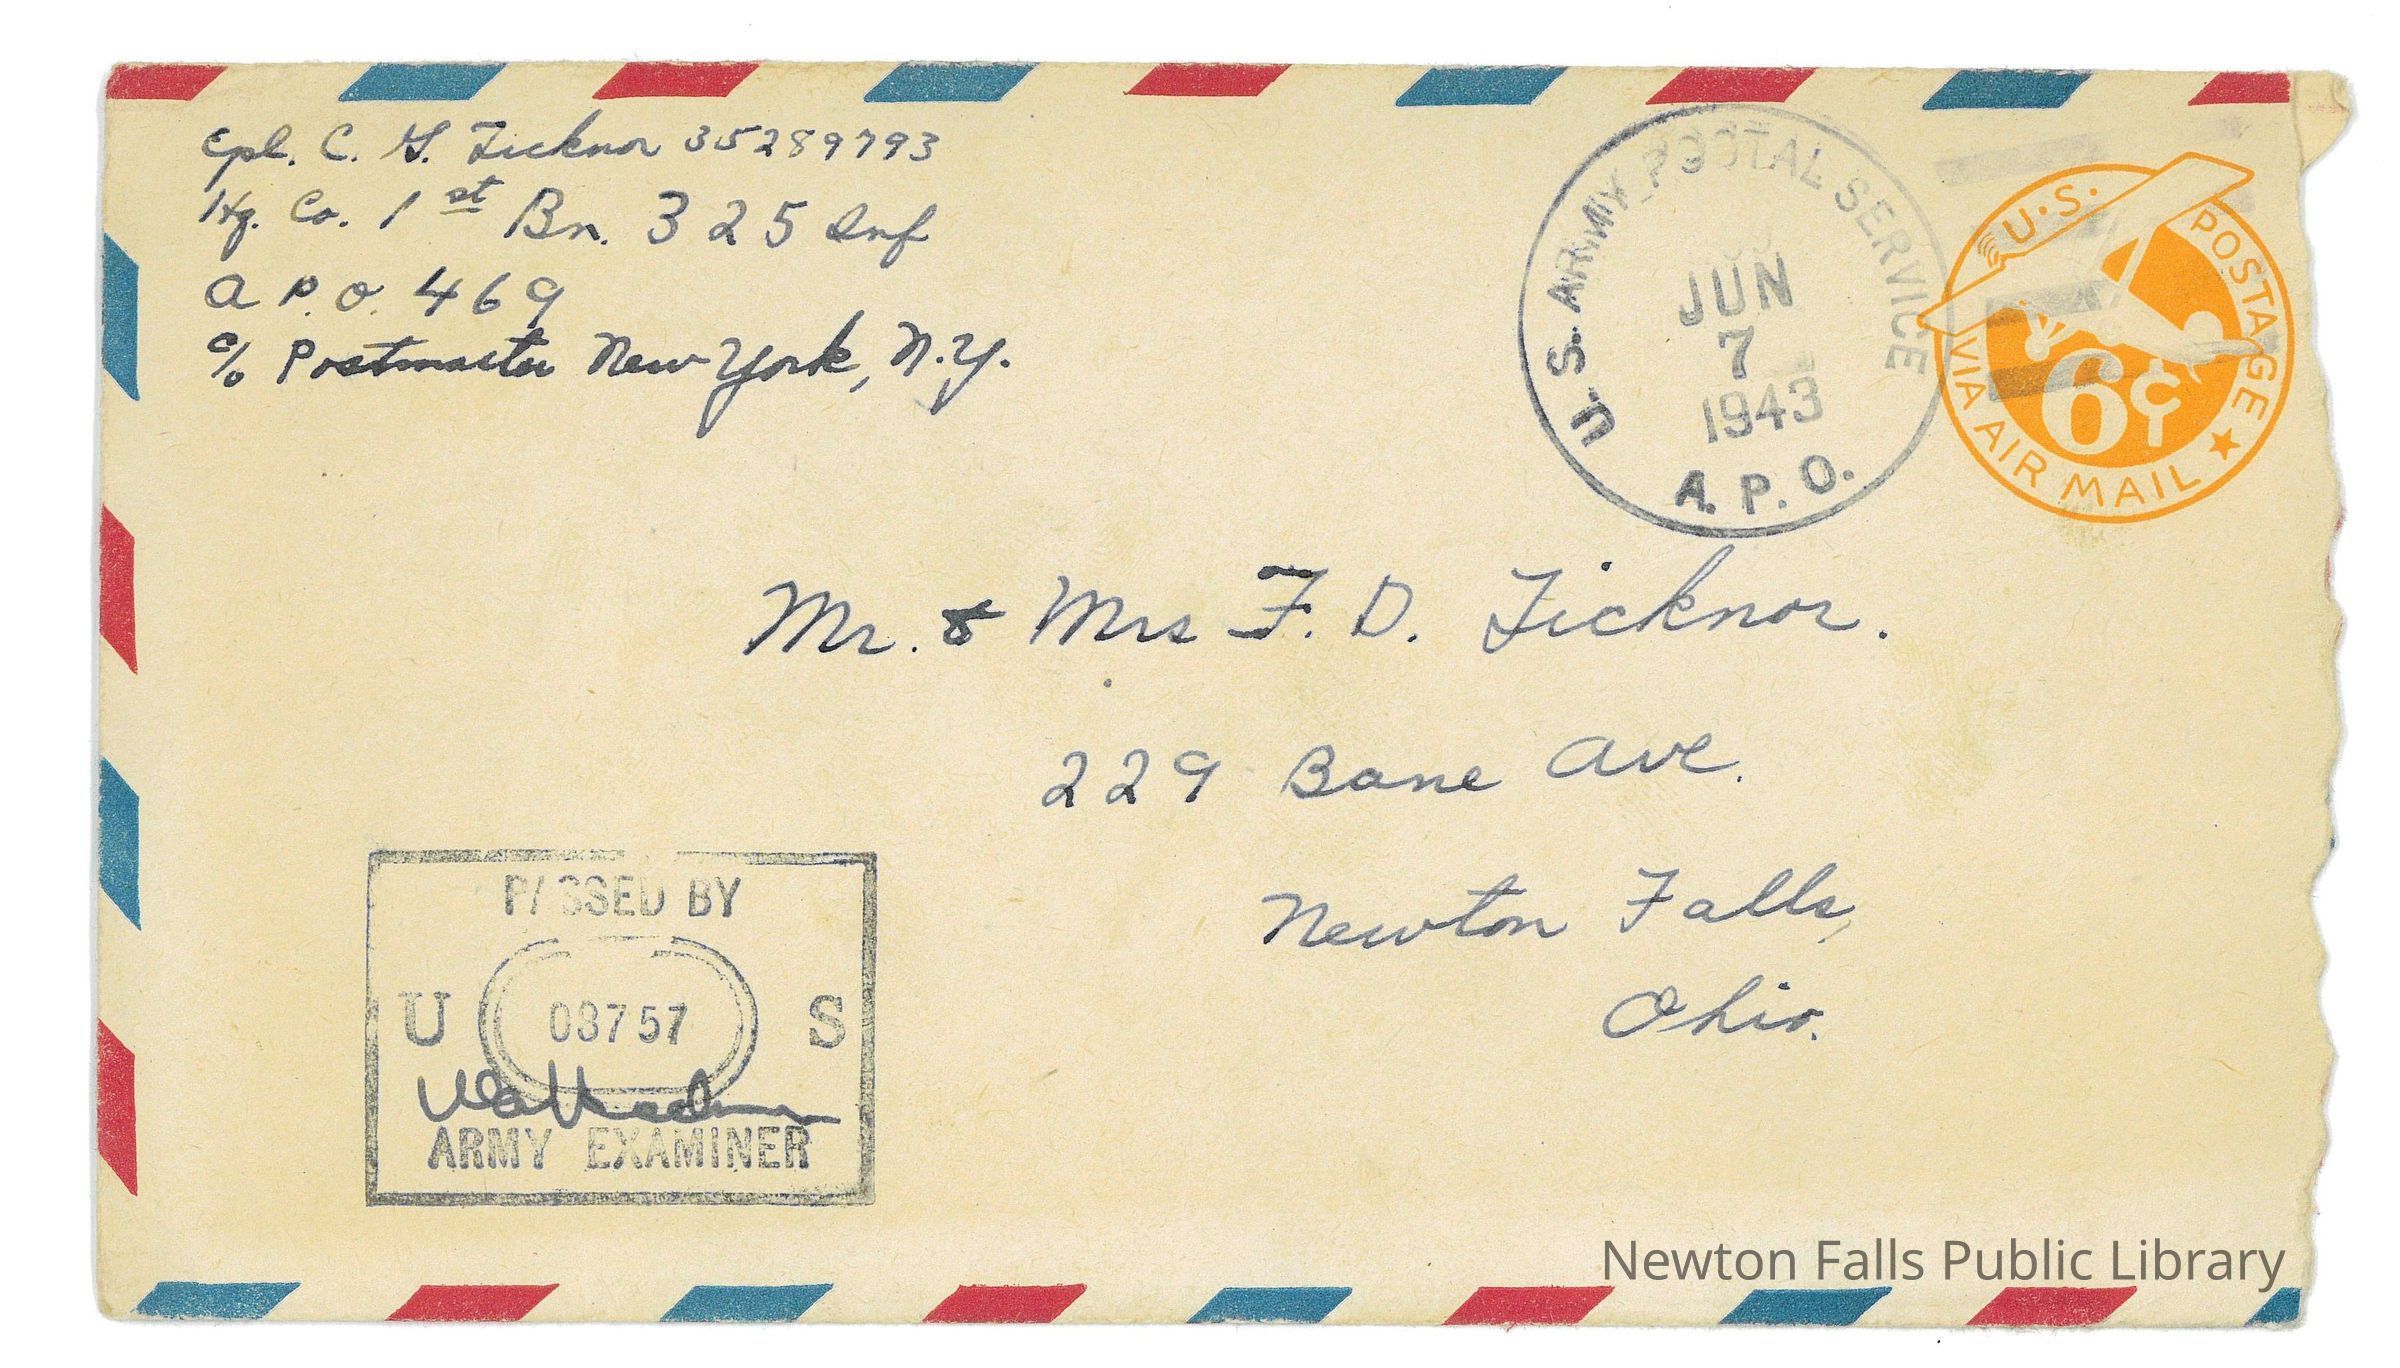 Cpl. C. G. Ticknor 35289793
Hq. Co. 1st Bn. 325 Inf
A.P.O. 469
c/o Postmaster New York, N.Y.
U.S. ARMY POSTAL SERVICE
JUN
7
1943
A.P.O.
U.S. POSTAGE
6¢
VIA AIR MAIL
Mr. & Mrs F. D. Ticknor.
229 Bane Ave.
Newton Falls,
Ohio.
PASSED BY
U 08757 S
ARMY EXAMINER
Newton Falls Public Library